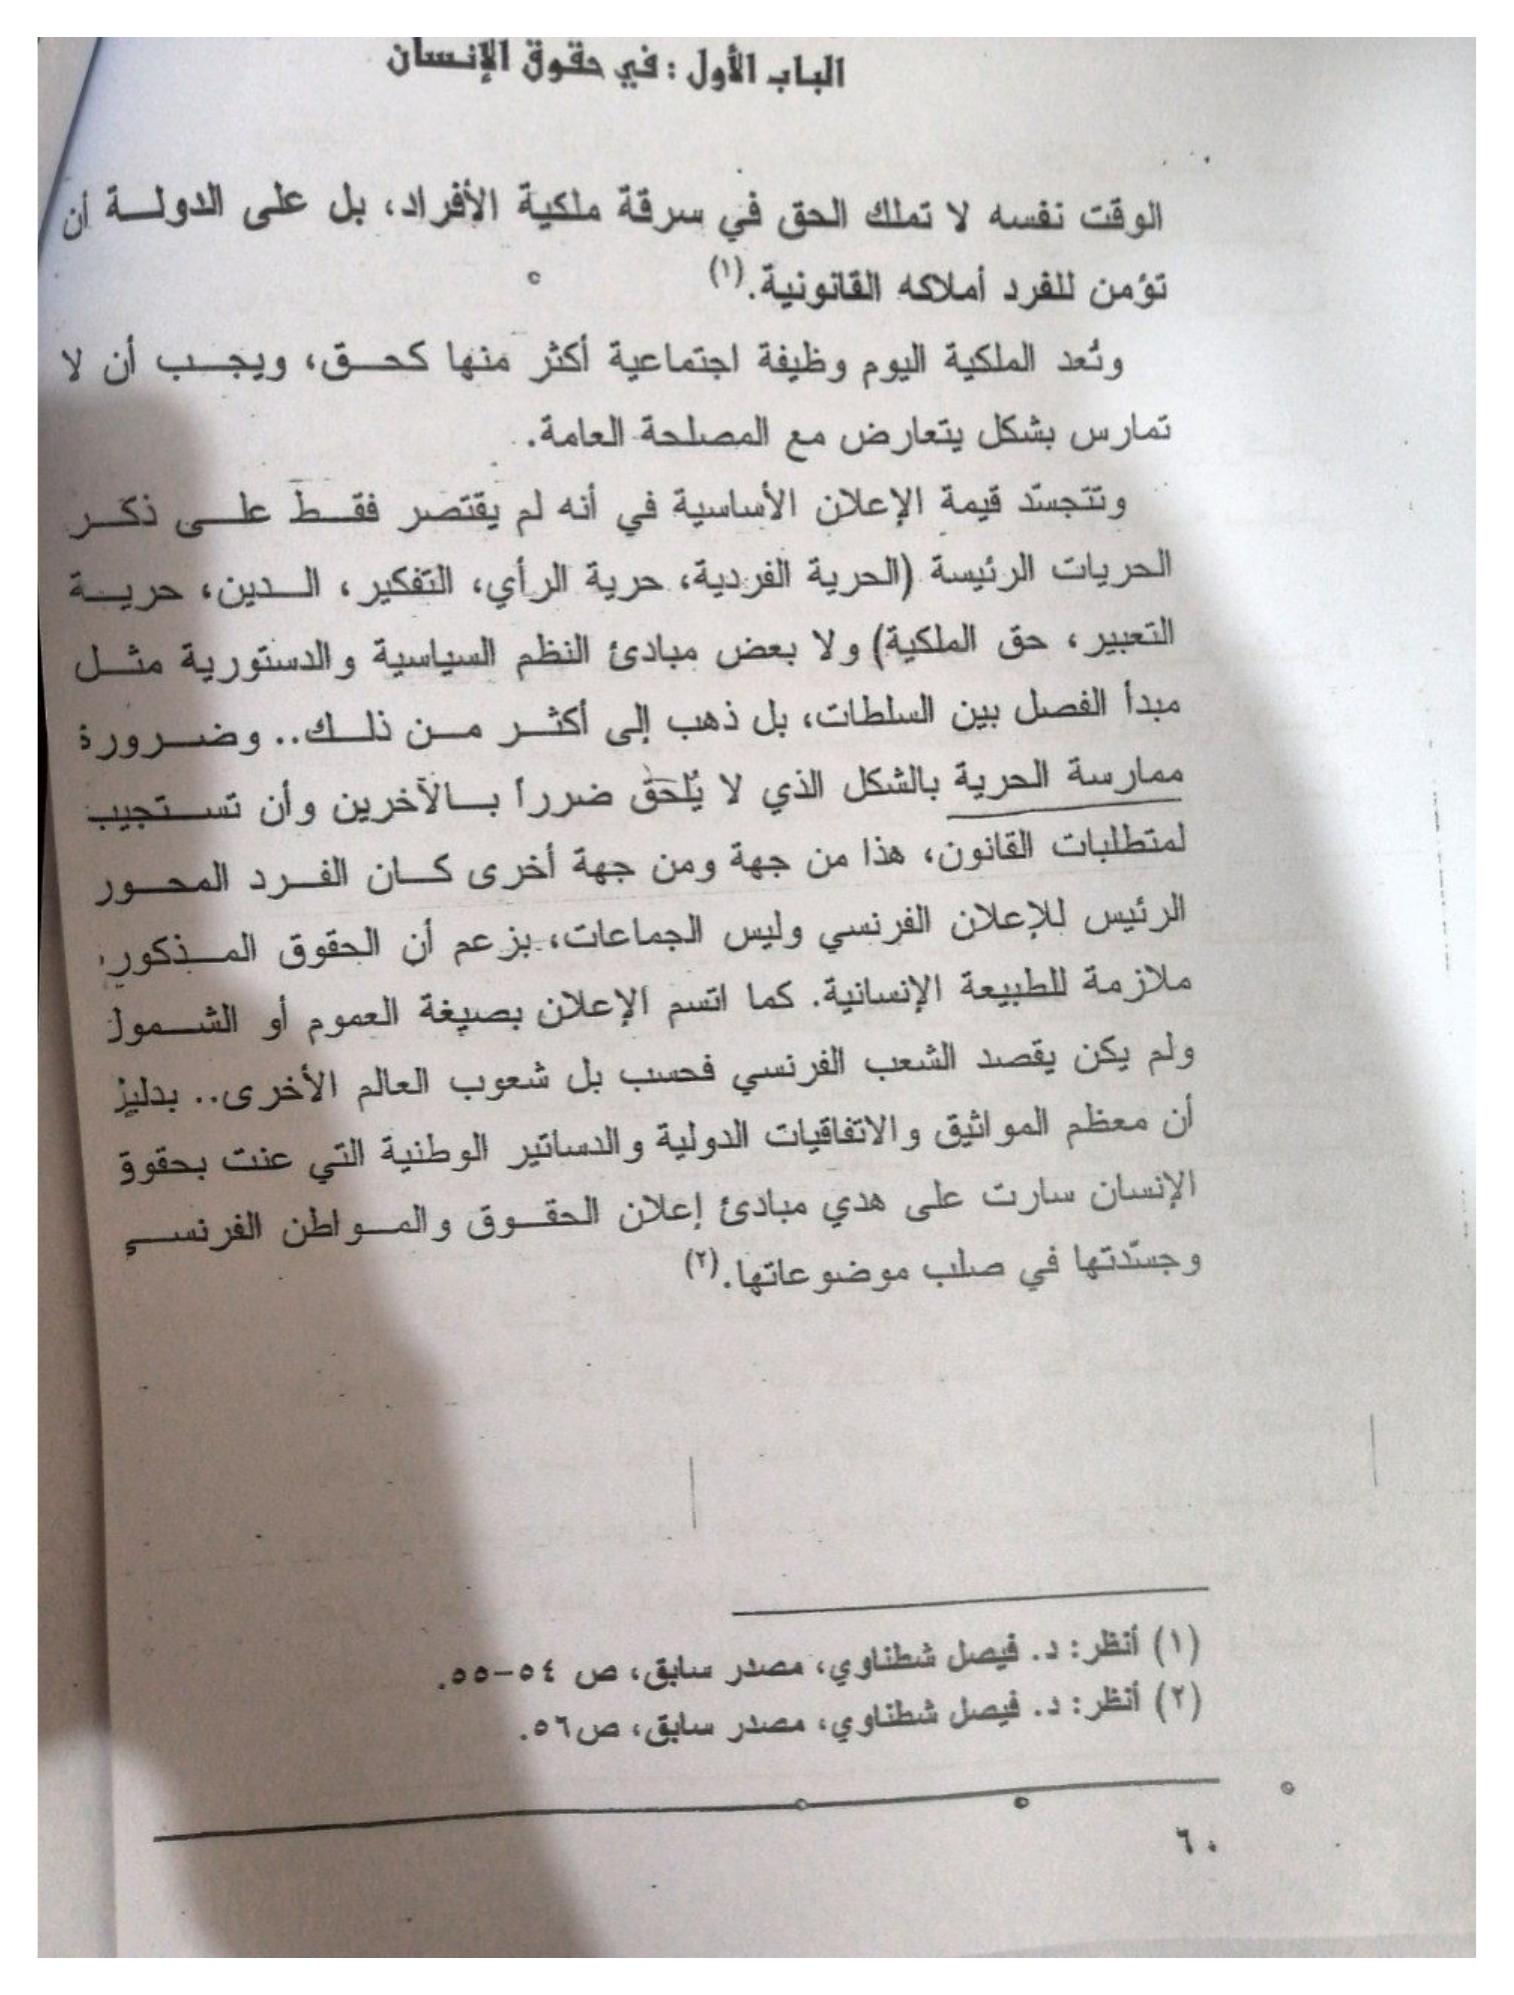 الباب الأول : في حقوق الإنسان
الوقت نفسه لا تملك الحق في سرقة ملكية الأفراد، بل على الدولة أن
تؤمن للفرد أملاكه القانونية.(١)
وتُعد الملكية اليوم وظيفة اجتماعية أكثر منها كحق، ويجب أن لا
تمارس بشكل يتعارض مع المصلحة العامة.
وتتجسّد قيمة الإعلان الأساسية في أنه لم يقتصر فقط على ذكر
الحريات الرئيسة (الحرية الفردية، حرية الرأي، التفكير، الدين، حرية
التعبير، حق الملكية) ولا بعض مبادئ النظم السياسية والدستورية مثل
مبدأ الفصل بين السلطات، بل ذهب إلى أكثر من ذلك.. وضرورة
ممارسة الحرية بالشكل الذي لا يُلحَق ضرراً بالآخرين وأن تستجيب
لمتطلبات القانون، هذا من جهة ومن جهة أخرى كان الفرد المحور
الرئيس للإعلان الفرنسي وليس الجماعات، بزعم أن الحقوق المذكور
ملازمة للطبيعة الإنسانية. كما اتسم الإعلان بصيغة العموم أو الشمول
ولم يكن يقصد الشعب الفرنسي فحسب بل شعوب العالم الأخرى.. بدليل
أن معظم المواثيق والاتفاقيات الدولية والدساتير الوطنية التي عنت بحقوق
الإنسان سارت على هدي مبادئ إعلان الحقوق والمواطن الفرنسي
وجسّدتها في صلب موضوعاتها.(٢)
(١) أنظر: د. فيصل شطناوي، مصدر سابق، ص ٥٤-٥٥.
(٢) أنظر: د. فيصل شطناوي، مصدر سابق، ص٥٦.
٦٠